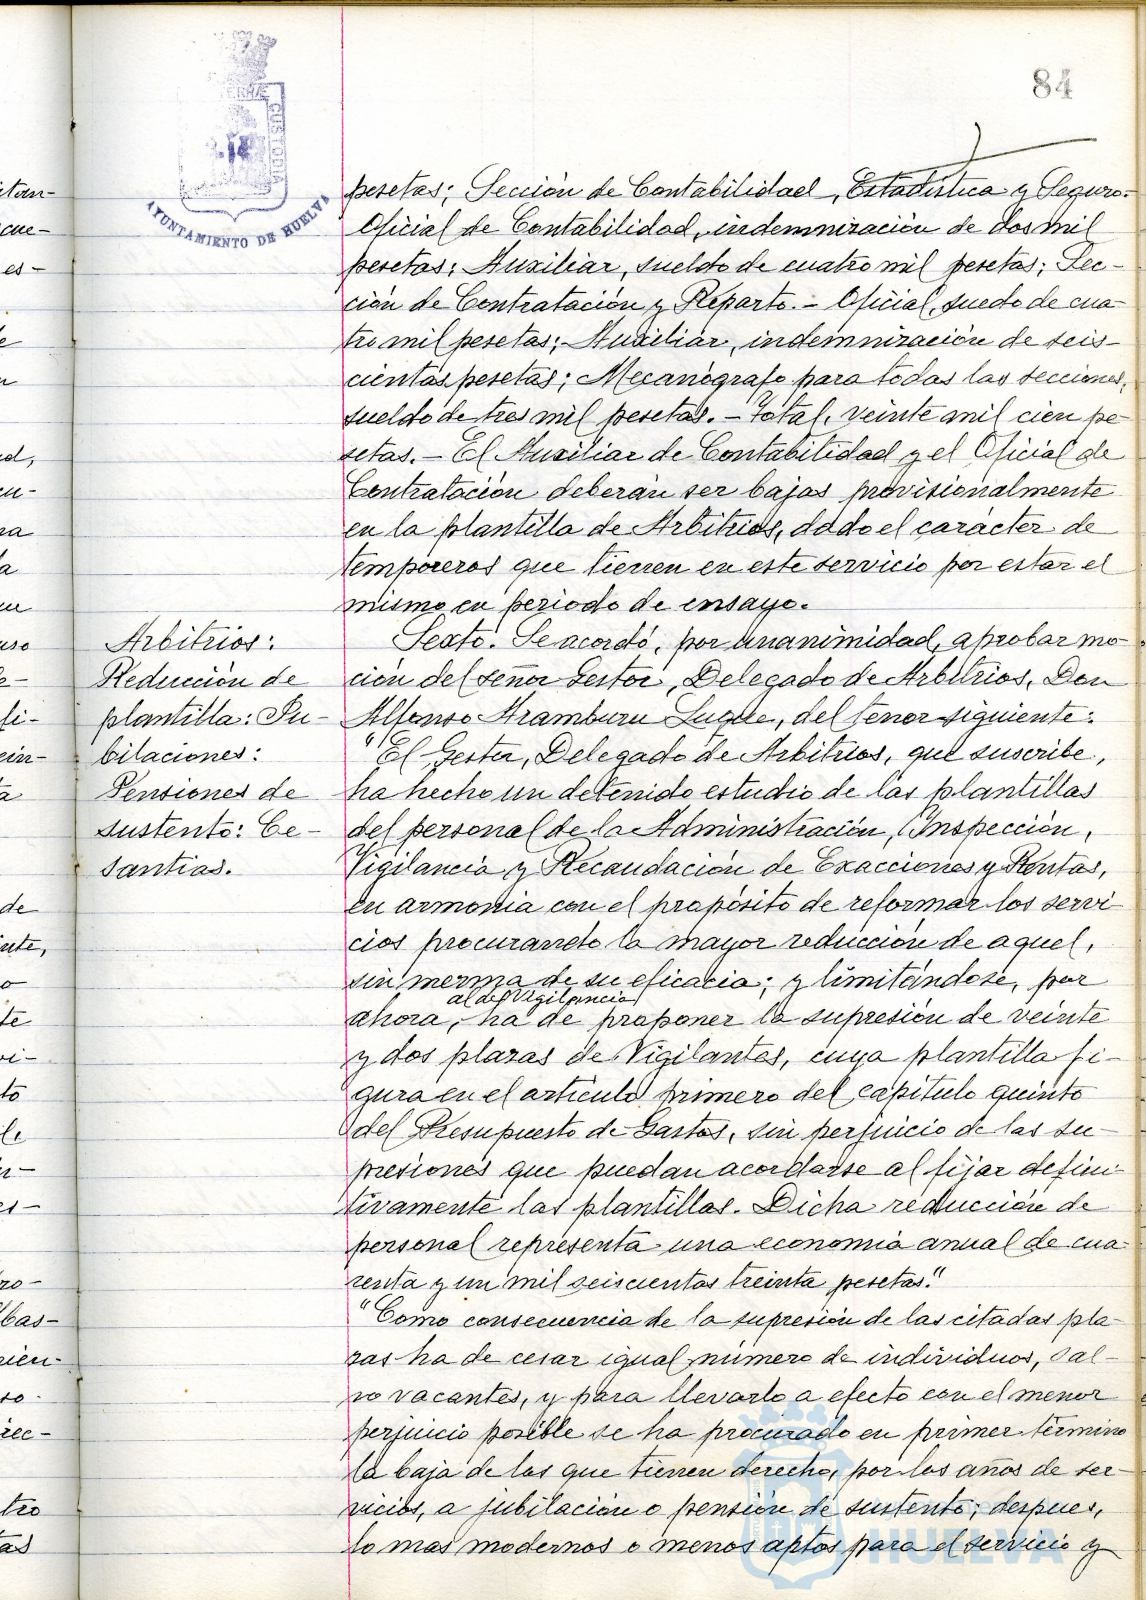 84
AYUNTAMIENTO DE HUELVA
pesetas; Sección de Contabilidad, Estadística y Seguro.-
Oficial de Contabilidad, indemnización de dos mil
pesetas; Auxiliar, sueldo de cuatro mil pesetas; Sec-
ción de Contratación y Reparto.- Oficial, suedo de cua-
tro mil pesetas; Auxiliar, indemnización de seis-
cientas pesetas; Mecanógrafo para todas las secciones,
sueldo de tres mil pesetas.- Total, veinte mil cien pe-
setas.- El Auxiliar de Contabilidad y el Oficial de
Contratación deberán ser bajas provisionalmente
en la plantilla de Arbitrios, dado el carácter de
temporeros que tienen en este servicio por estar el
mismo en periodo de ensayo.
Arbitrios:
Reducción de
plantilla: Ju-
bilaciones:
Pensiones de
sustento: Ce-
santias.
Sexto. Se acordó, por unanimidad, aprobar mo-
ción del señor Gestor, Delegado de Arbitrios, Don
Alfonso Aramburu Luque, del tenor siguiente:
"El Gestor, Delegado de Arbitrios, que suscribe,
ha hecho un detenido estudio de las plantillas
del personal de la Administración, Inspección,
Vigilancia y Recaudación de Exacciones y Rentas,
en armonia con el propósito de reformar los servi-
cios procurando la mayor reducción de aquel,
sin merma de su eficacia; y limitándose, por
al de Vigilancia
ahora, ha de proponer la supresión de veinte
y dos plazas de Vigilantes, cuya plantilla fi-
gura en el artículo primero del capítulo quinto
del Presupuesto de Gastos, sin perjuicio de las su-
presiones que puedan acordarse al fijar defini-
tivamente las plantillas. Dicha reducción de
personal representa una economía anual de cua-
renta y un mil seiscientas treinta pesetas."
"Como consecuencia de la supresión de las citadas pla-
zas ha de cesar igual número de individuos, sal-
vo vacantes, y para llevarlo a efecto con el menor
perjuicio posible se ha procurado en primer término
la baja de los que tienen derecho, por los años de ser-
vicios, a jubilación o pensión de sustento; despues,
lo mas modernos o menos aptos para el servicio y
HUELVA